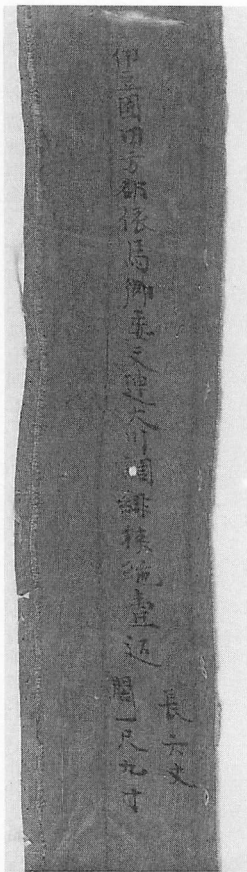 伊豆國田方郡依馬郷委文連大川調緋狹絁壹匹
長六丈
闊一尺九寸